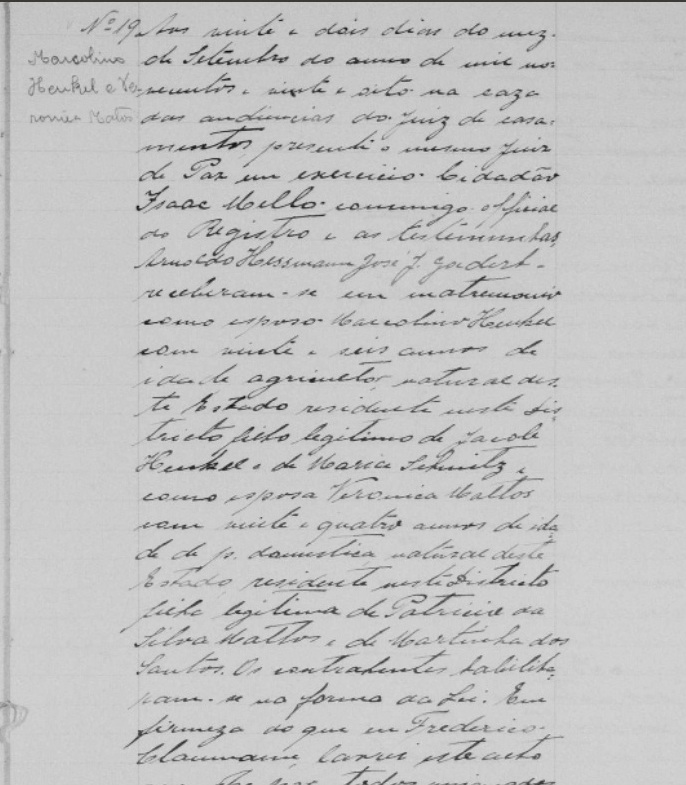 Nº 19
Marcolino
Henkel e Ve-
ronica Matos
Aos vinte e dois dias do mez
de Setembro do anno de mil no-
vecentos e vinte e oito na caza
das audiencias do Juiz de casa-
mentos presente o mesmo Juiz
de Paz em exercicio Cidadão
Isaac Mello comigo official
do Registro e as testimunhas
Arnoldo Hessmann José J.
receberam-se em matremonio
como esposo Marcolino Henkel
com vinte e seis annos de
idade agricultor natural des-
te Estado residente neste Dis-
tricto filho legitimo de Jacob
Henkel e de Maria Schmitz e
como esposa Veronica Mattos
com vinte e quatro annos de ida
de de p. domestica natural deste
Estado residente neste Districto
filha legitima de Patricio da
Silva Mattos e de Martinha dos
Santos. Os contrahentes habilita-
ram-se na forma da Lei. Em
firmeza do que eu Frederico
lavrei este acto
todos